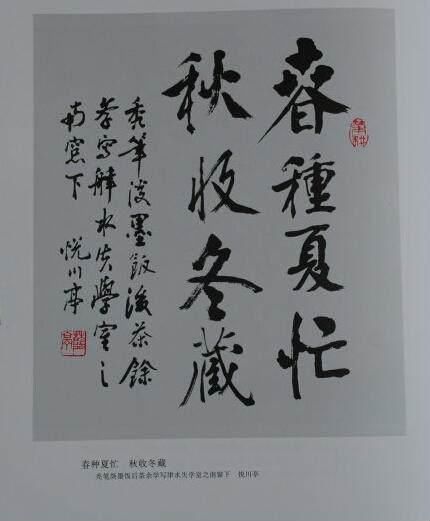 春種夏忙
秋收冬藏
秃筆淡墨飯後茶餘
學寫水失學室之
南窗下 悦川亭
春种夏忙 秋收冬藏
秃笔淡墨饭后茶余学写水失学室之南窗下 悦川亭